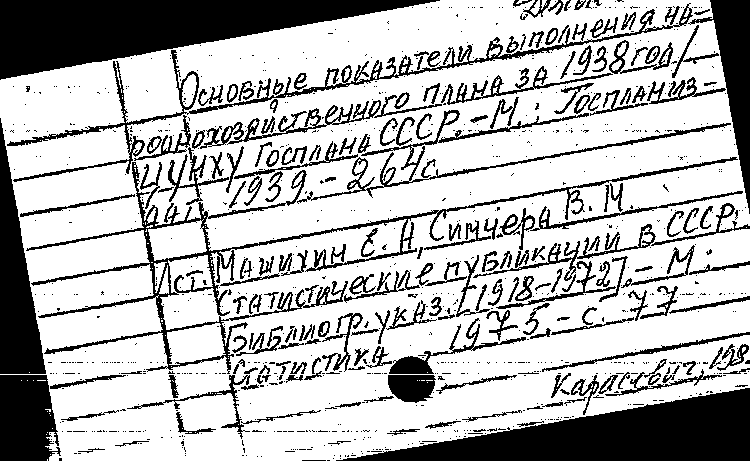 Основные показатели выполнения на-
роднохозяйственного плана за 1938 год /
ЦУНХУ Госплана СССР. – М. : Госпланиз-
дат, 1939. – 264 с.
Ист. Машихин Е. А, Симчера В. М.
Статистические публикации в СССР:
Библиогр. указ. [1918-1972]. – М :
Статистика, 1975. – с. 77
Карасевич, 198